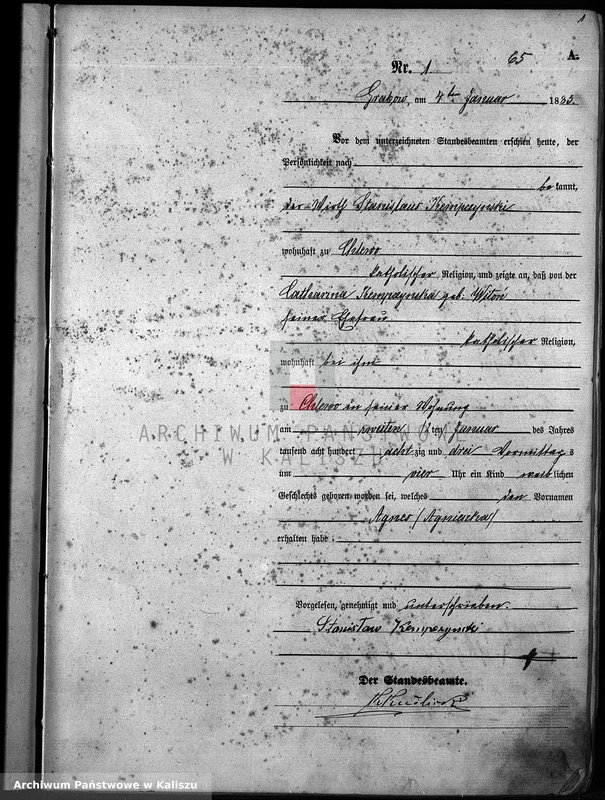 1
65 A.
Nr. 1
Grabow, am 4ten Januar 1883.
Vor dem unterzeichneten Standesbeamten erschien heute, der
Persönlichkeit nach
bekannt,
der Wirth Stanislaus Kempczynski
wohnhaft zu Chlewo
katholischer Religion, und zeigte an, daß von der
Catharina Kempczynska geb. Witoń
seiner Ehefrau
katholischer Religion,
wohnhaft bei ihm
zu Chlewo in seiner Wohnung
am zweiten (2ten) Januar des Jahres
tausend acht hundert achtzig und drei Vormittags
um vier Uhr ein Kind weiblichen
Geschlechts geboren worden sei, welches den Vornamen
Agnes (Agnieszka)
erhalten habe.
Vorgelesen, genehmigt und unterschrieben.
Stanisław Kempczynski
Der Standesbeamte.
ARCHIWUM PAŃSTWOWE
W KALISZU
Archiwum Państwowe w Kaliszu